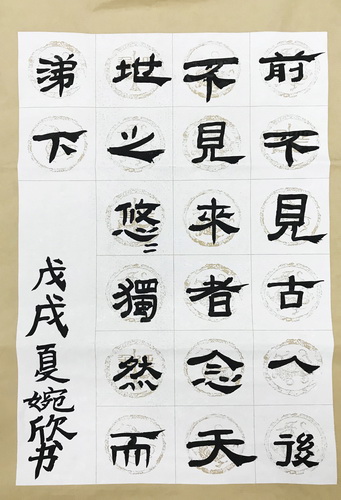 前不見古人後
不見來者念天
地之悠〻獨然而
涕下
戊戌夏婉欣书